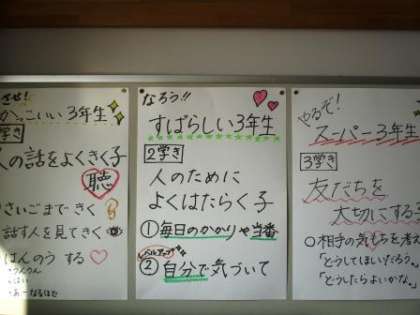 させ!
かっこいい3年生
学き
人の話をよくきく子
聴
さいごまできく
話す人を見てきく
はんのうする
なろう!!
すばらしい3年生
2学き
人のために
よくはたらく子
①毎日のかかりや当番
レベルアップ
②自分で気づいて
やるぞ!
スーパー3年生
3学き
友だちを
大切にする
○相手の気もちを考え
「どうしてほしいだろう。」
「どうしたらよいかな。」